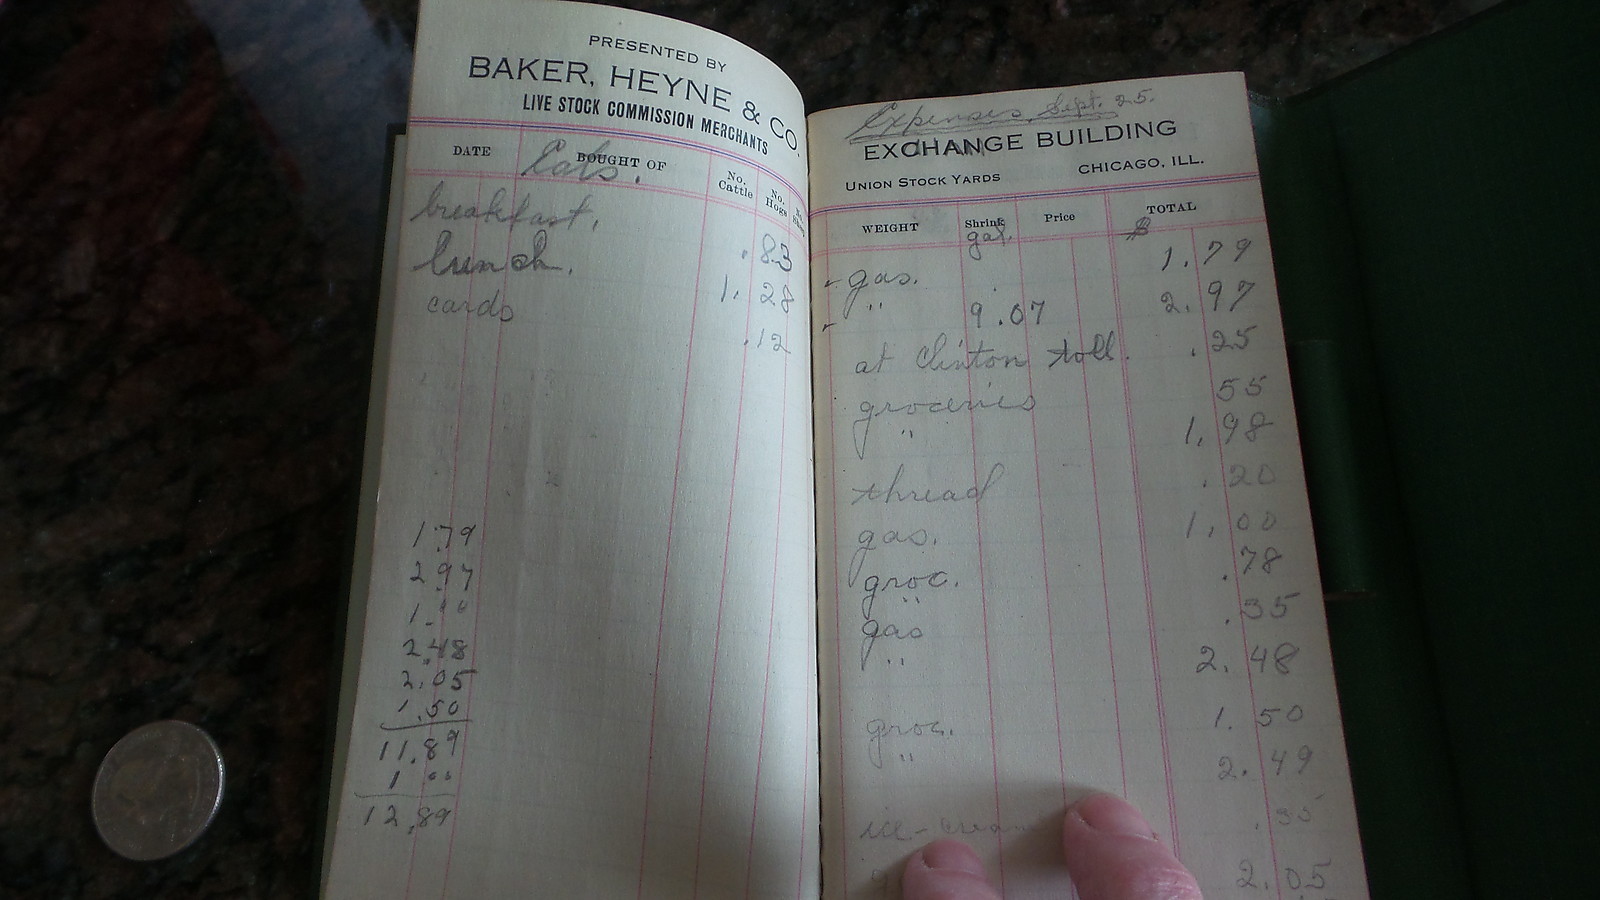 PRESENTED BY
BAKER, HEYNE & CO.
LIVE STOCK COMMISSION MERCHANTS
DATE BOUGHT OF No. Cattle No. Hogs
Eats.
breakfast. .83
lunch. 1.28
cards .12
1.79
2.97
1.00
2.48
2.05
1.50
11.89
1 00
12.89
Expenses, Sept. 25.
EXCHANGE BUILDING
UNION STOCK YARDS CHICAGO, ILL.
WEIGHT Shrink Price TOTAL
gal. $
gas. 1.79
" 9.07 2.97
at Clinton toll. .25
groceries 55
" 1.98
thread .20
gas. 1.00
groc. .78
" .35
gas 2.48
"
groc. 1.50
" 2.49
ice-cream .35
2.05